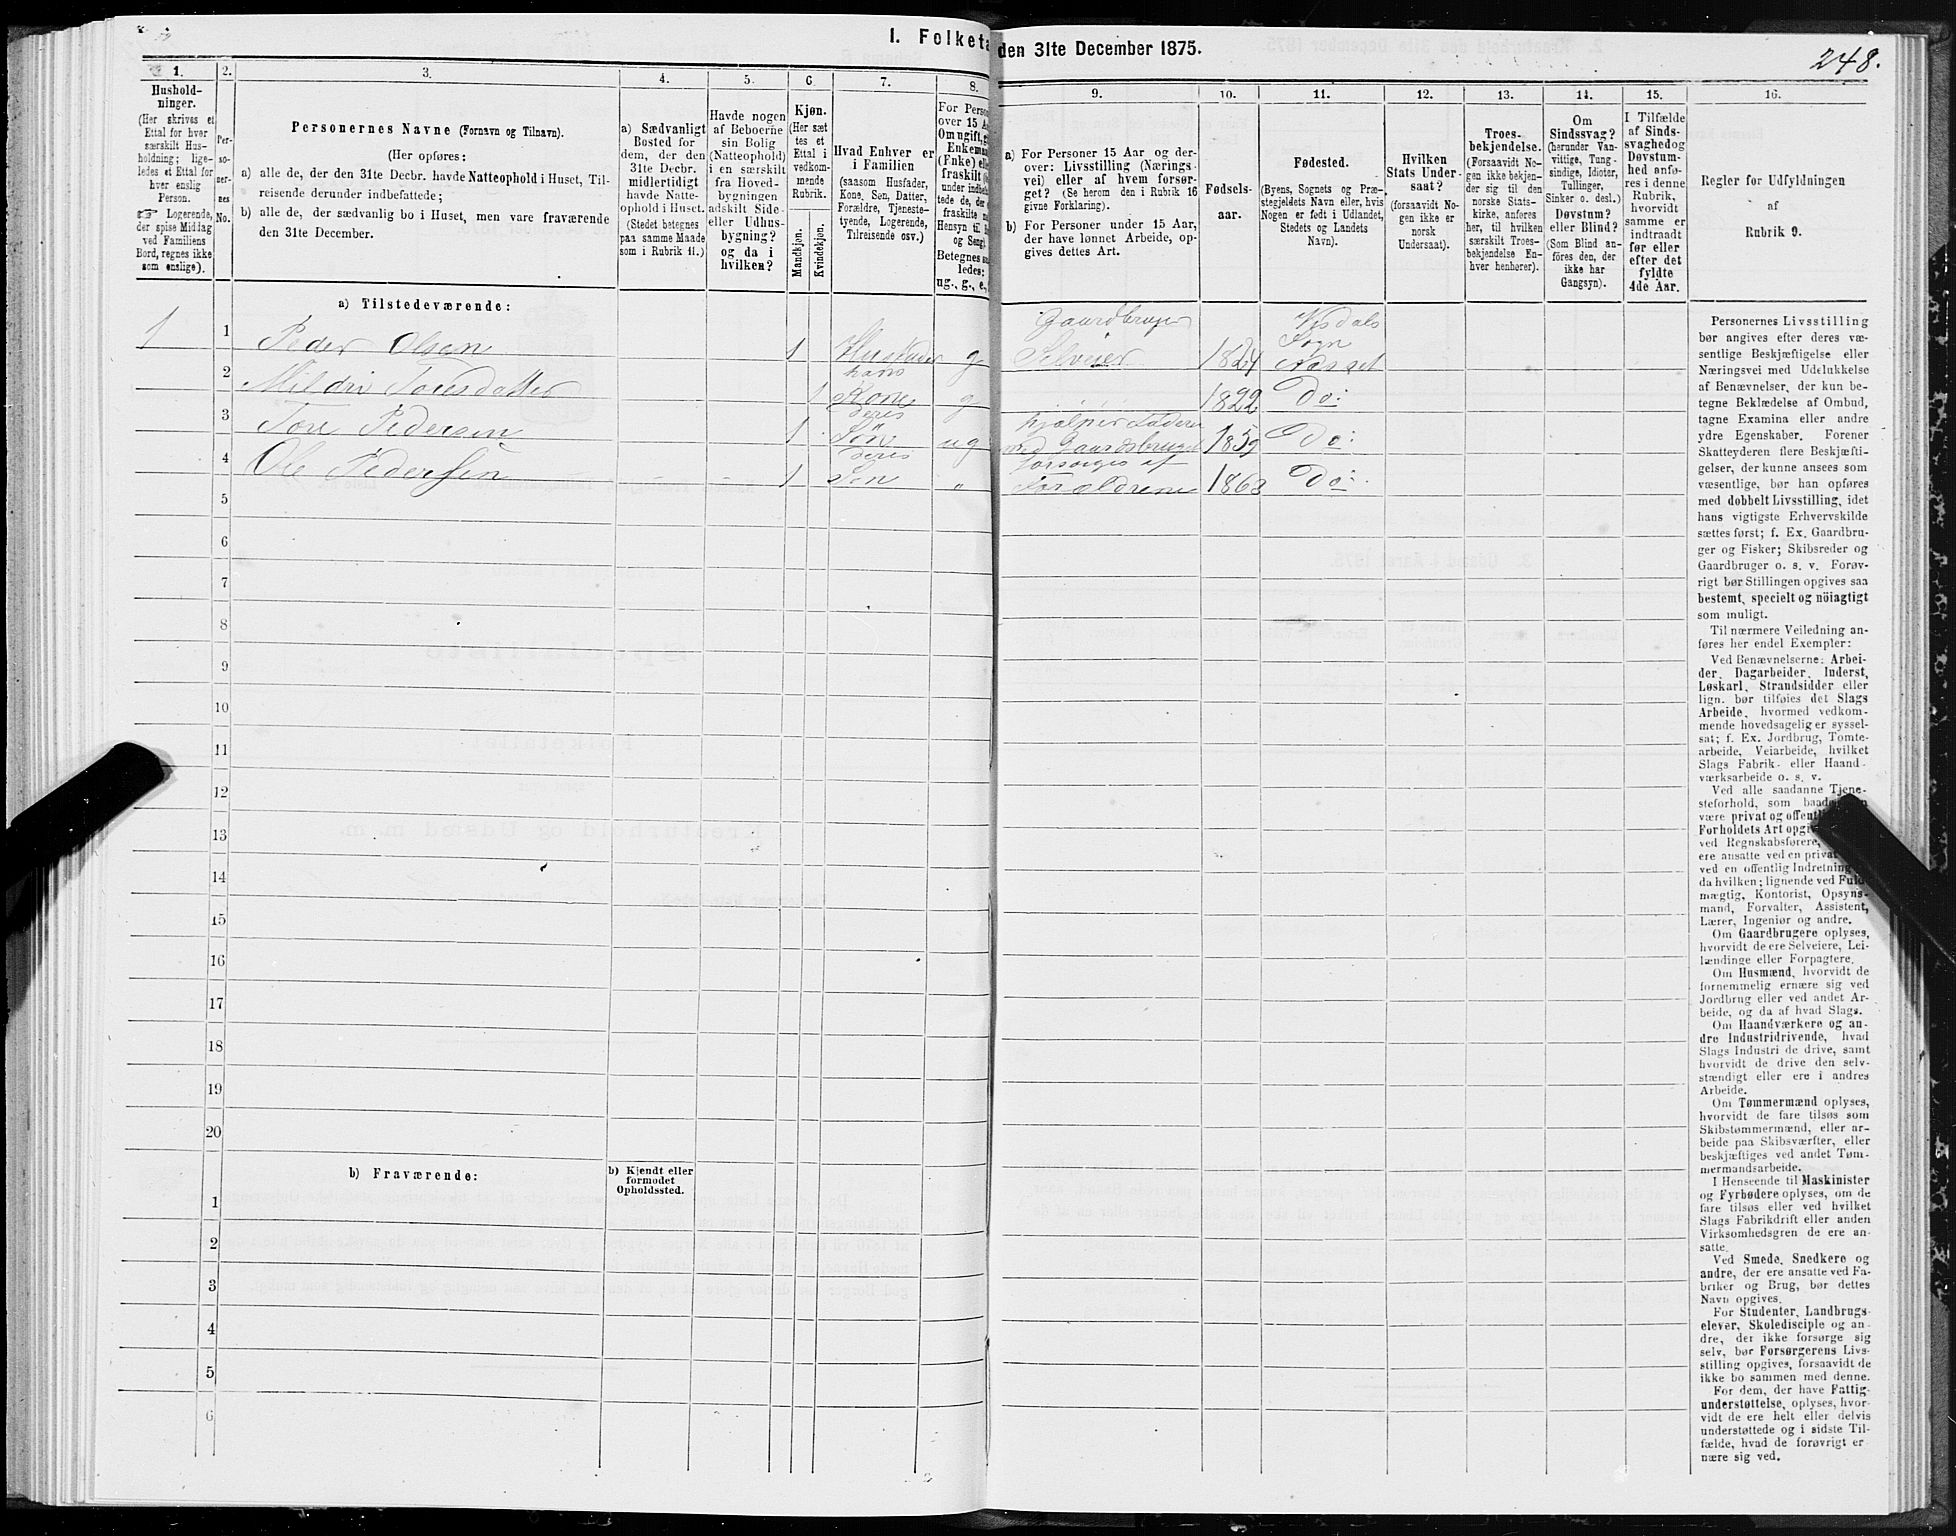 I. Folketa den 31te December 1875.
248.
1.
Hushold-
ninger.
(Her skrives et
Ettal for hver
særskilt Hus-
holdning; lige-
ledes et Ettal for
hver enslig
Person.
☞ Logerende,
der spise Middag
ved Familiens
Bord, regnes ikke
som enslige).
2.
Per-
so-
ner-
nes
No.
3.
Personernes Navne (Fornavn og Tilnavn).
(Her opføres:
a) alle de, der den 31te Decbr. havde Natteophold i Huset, Til-
reisende derunder indbefattede;
b) alle de, der sædvanlig bo i Huset, men vare fraværende
den 31te December.
4.
a) Sædvanligt
Bosted for
dem, der den
31te Decbr.
midlertidigt
havde Natte-
ophold i Huset.
(Stedet betegnes
paa samme Maade
som i Rubrik 11.)
5.
Havde nogen
af Beboerne
sin Bolig
(Natteophold)
i en særskilt
fra Hoved-
bygningen
adskilt Side-
eller Udhus-
bygning?
og da i
hvilken?
6.
Kjøn.
(Her sæt
tes et
Ettal i
vedkom-
mende
Rubrik.
Mandkjøn.
Kvindekjøn.
7.
Hvad Enhver er
i Familien
(saasom Husfader,
Kone, Søn, Datter,
Forældre, Tjeneste-
tyende, Logerende,
Tilreisende osv.)
8.
For Perso
over 15 A
Om ugift, g
Enkeman
(Enke) ell
fraskilt
under indbe
tede de, der
fraskilte
Hensyn til
og Seng).
Betegnes
ledes:
ug., g., e.,
9.
a) For Personer 15 Aar og der-
over: Livsstilling (Nærings-
vei) eller af hvem forsør-
get? (Se herom den i Rubrik 16
givne Forklaring).
b) For Personer under 15 Aar,
der have lønnet Arbeide, op-
gives dettes Art.
10.
Fødsels-
aar.
11.
Fødested.
(Byens, Sognets og Præ-
stegjeldets Navn eller, hvis
Nogen er født i Udlandet,
Stedets og Landets
Navn).
12.
Hvilken
Stats Under-
saat?
(forsaavidt No-
gen ikke er
norsk
Undersaat).
13.
Troes-
bekjendelse.
(Forsaavidt No-
gen ikke bekjen-
der sig til den
norske Stats-
kirke, anføres
her, til hvilken
særskilt Troes-
bekjendelse En-
hver henhører).
14.
Om
Sindssvag?
(herunder Van-
vittige, Tung-
sindige, Idioter,
Tullinger,
Sinker o. desl.)
Døvstum?
eller Blind?
(Som Blind an-
føres den, der
ikke har
Gangsyn).
15.
I Tilfælde
af Sinds-
svaghed og
Døvstum-
hed anfø-
res i denne
Rubrik,
hvorvidt
samme er
indtraadt
før eller
efter det
fyldte
4de Aar.
16.
Regler for Udfyldningen
af
Rubrik 9.
a) Tilstedeværende:
1 1 Peder Olsen 1 Husfader g Gaardbruger Selveier 1824 Vesdals Sogn Næsset
2 Mildri Toresdatter 1 hans Kone g 1822 Do:
3 Tore Pedersen 1 deres Søn ug hjælper Faderen med Gaardsbruget 1859 Do:
4 Ole Pedersen 1 deres Søn " Forsørges af Forældrene 1863 Do:
5
6
7
8
9
10
11
12
13
14
15
16
17
18
19
20
b) Fraværende:
b) Kjendt eller
formodet
Opholdssted.
1
2
3
4
5
6
Personernes Livsstilling
bør angives efter deres væ-
sentlige Beskjæftigelse eller
Næringsvei med Udelukkelse
af Benævnelser, der kun be-
tegne Beklædelse af Ombud,
tagne Examina eller andre
ydre Egenskaber. Forener
Skatteyderen flere Beskjæfti-
gelser, der kunne ansees som
væsentlige, bør han opføres
med dobbelt Livsstilling, idet
hans vigtigste Erhvervskilde
sættes først; f. Ex. Gaardbru-
ger og Fisker; Skibsreder og
Gaardbruger o. s. v. Forøv-
rigt bør Stillingen opgives saa
bestemt, specielt og nöiagtigt
som muligt.
Til nærmere Veiledning an-
føres her endel Exempler:
Ved Benævnelserne: Arbei-
der, Dagarbeider, Inderst,
Løskarl, Strandsidder eller
lign. bør tilføies det Slags
Arbeide, hvormed vedkom-
mende hovedsagelig er syssel-
sat; f. Ex. Jordbrug, Tomte-
arbeide, Veiarbeide, hvilket
Slags Fabrik- eller Haand-
værksarbeide o. s. v.
Ved alle saadanne Tjene-
steforhold, som baade
være privat og offentl
Forholdets Art opgi
ved Regnskabsførere,
ere ansatte ved en privat
ved en offentlig Indretning
da hvilken; lignende ved Fuld-
mægtig, Kontorist, Opsyns-
mand, Forvalter, Assistent,
Lærer, Ingeniør og andre.
Om Gaardbrugere oplyses,
hvorvidt de ere Selveiere, Lei-
lændinge eller Forpagtere.
Om Husmænd, hvorvidt de
fornemmelig ernære sig ved
Jordbrug eller ved andet Ar-
beide, og da af hvad Slags.
Om Haandværkere og an-
dre Industridrivende, hvad
Slags Industri de drive, samt
hvorvidt de drive den selv-
stændigt eller ere i andres
Arbeide.
Om Tømmermænd oplyses,
hvorvidt de fare tilsøs som
Skibstømmermænd, eller ar-
beide paa Skibsværfter, eller
beskjæftiges ved andet Tøm-
mermandsarbeide.
I Henseende til Maskinister
og Fyrbødere oplyses, om de
fare tilsøs eller ved hvilket
Slags Fabrikdrift eller anden
Virksomhedsgren de ere an-
satte.
Ved Smede, Snedkere og
andre, der ere ansatte ved Fa-
briker og Brug, bør dettes
Navn opgives.
For Studenter, Landbrugs-
elever, Skoledisciple og an-
dre, der ikke forsørge sig
selv, bør Forsørgerens Livs-
stilling opgives, forsaavidt de
ikke bo sammen med denne.
For dem, der have Fattig-
understøttelse, oplyses, hvor-
vidt de ere helt eller delvis
understøttede og i sidste Til-
fælde, hvad de forøvrigt er
nære sig ved.